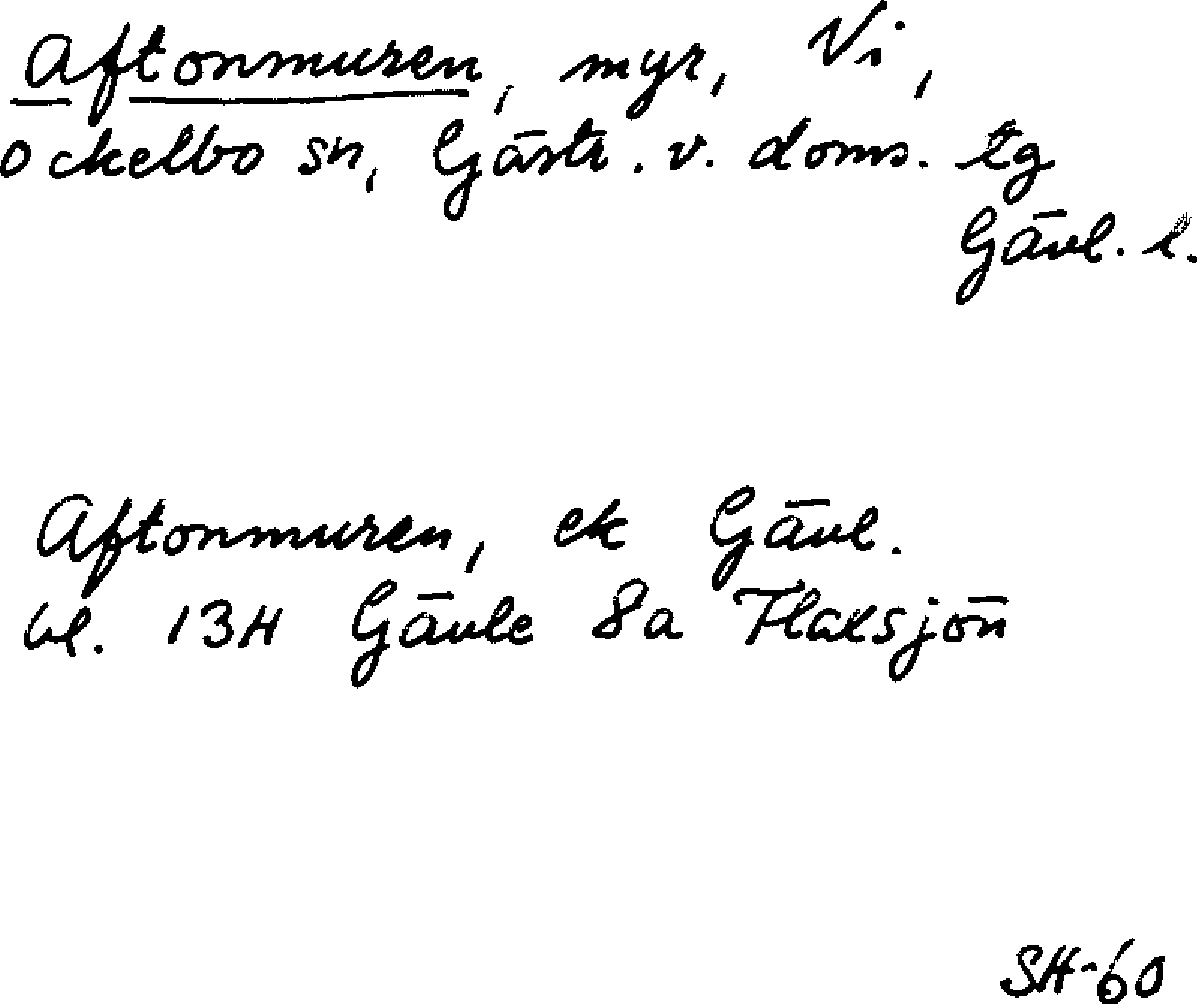 Aftonmuren, myr, Vi,
Ockelbo sn, Gästr. v. doms. tg
Gävl. l.
Aftonmuren, ek Gävl.
bl. 13H Gävle 8a Flaxsjön
SH-60